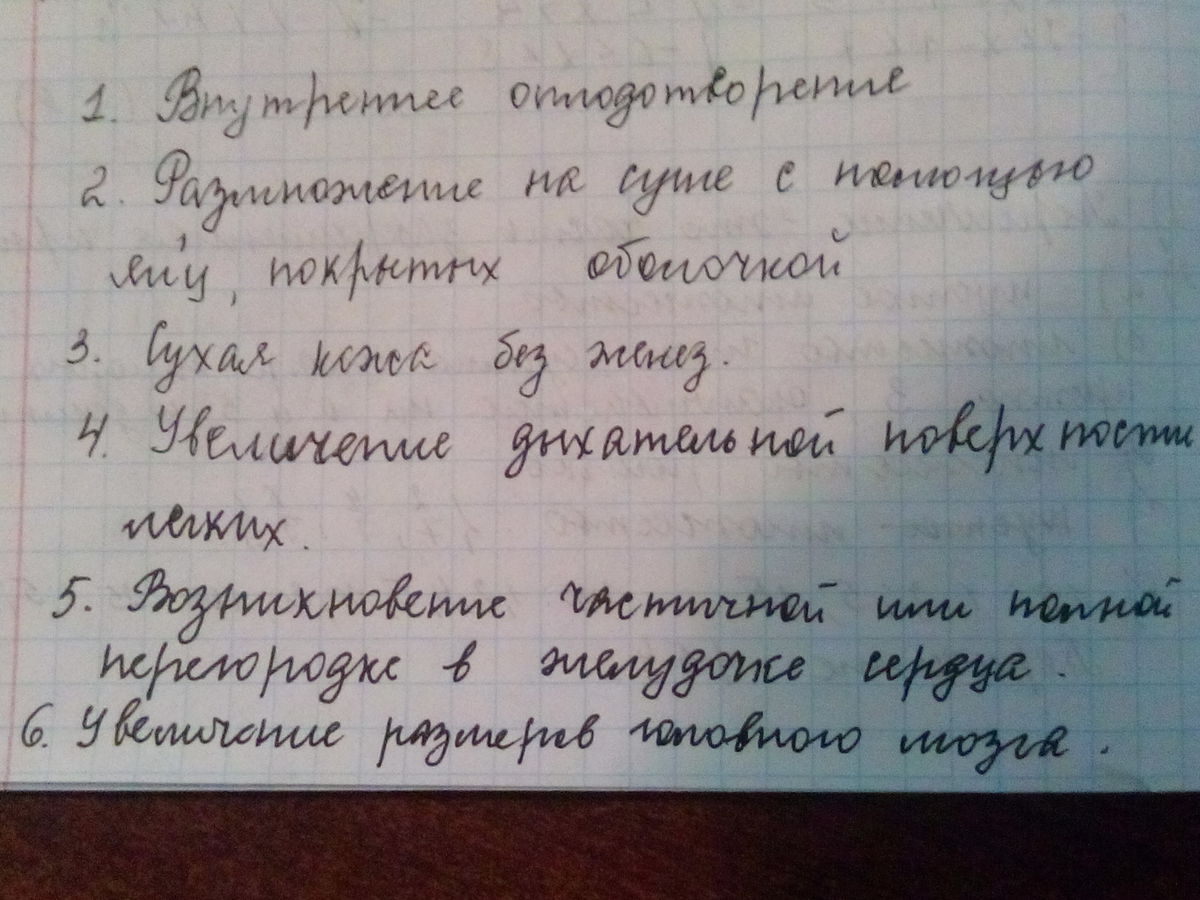 1. Внутреннее оплодотворение
2. Размножение на суше с помощью
яиц, покрытых оболочкой
3. Сухая кожа без желез.
4. Увеличение дыхательной поверхности
легких.
5. Возникновение частичной или полной
перегородке в желудочке сердца.
6. Увеличение размеров головного мозга.